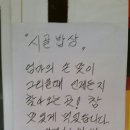 "시골 밥상"
엄마의 손맛이
그리울때 언제든지
찾아오는 곳! 참
맛있게 먹었습니다